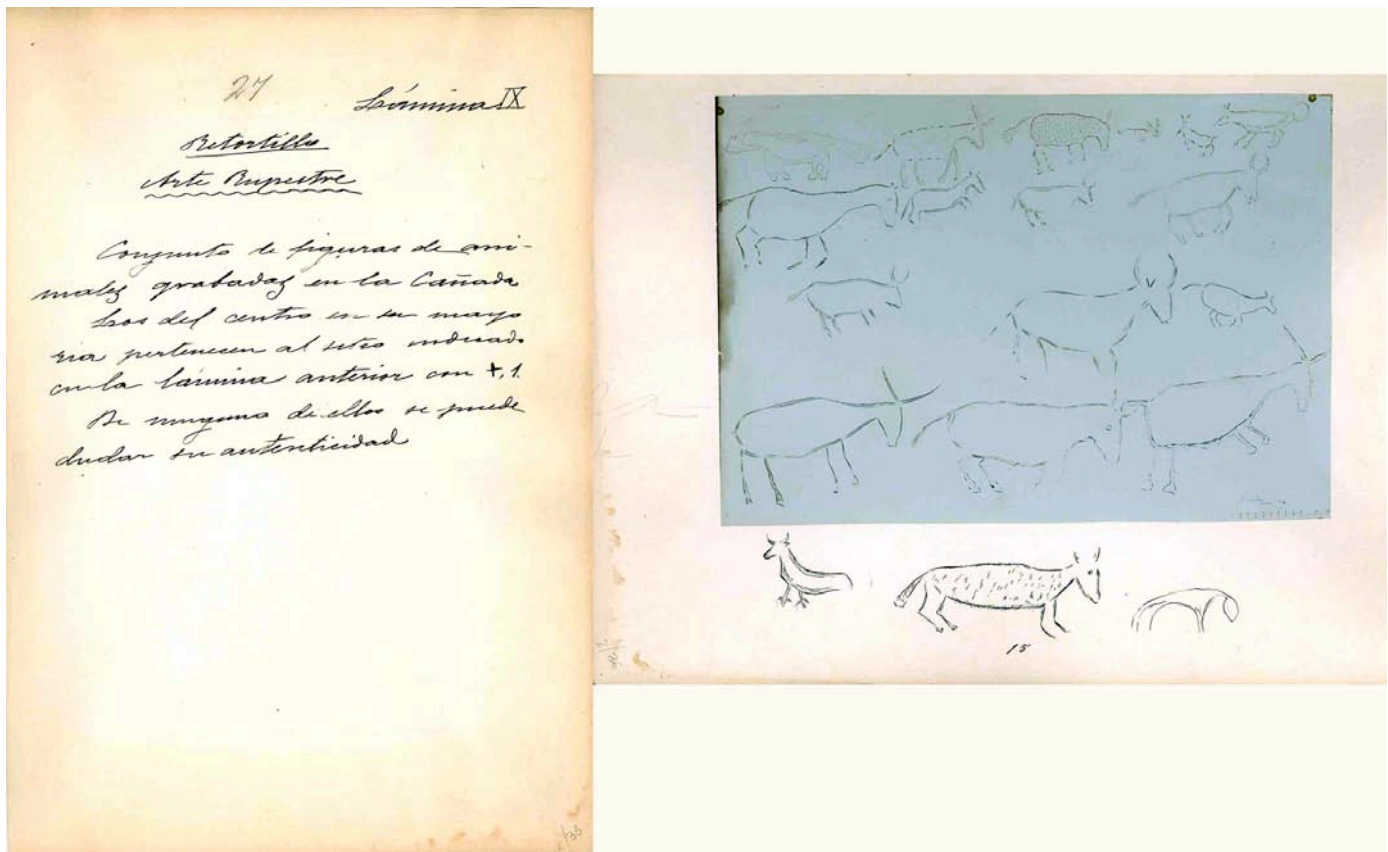 27
Lámina IX
Retortillo
Arte Rupestre
Conjunto de figuras de ani-
males grabadas en la Cañada
Los del centro en su mayo
ria pertenecen al sitio indicado
en la lámina anterior con +, 1.
De ninguno de ellos se puede
dudar su autenticidad
15